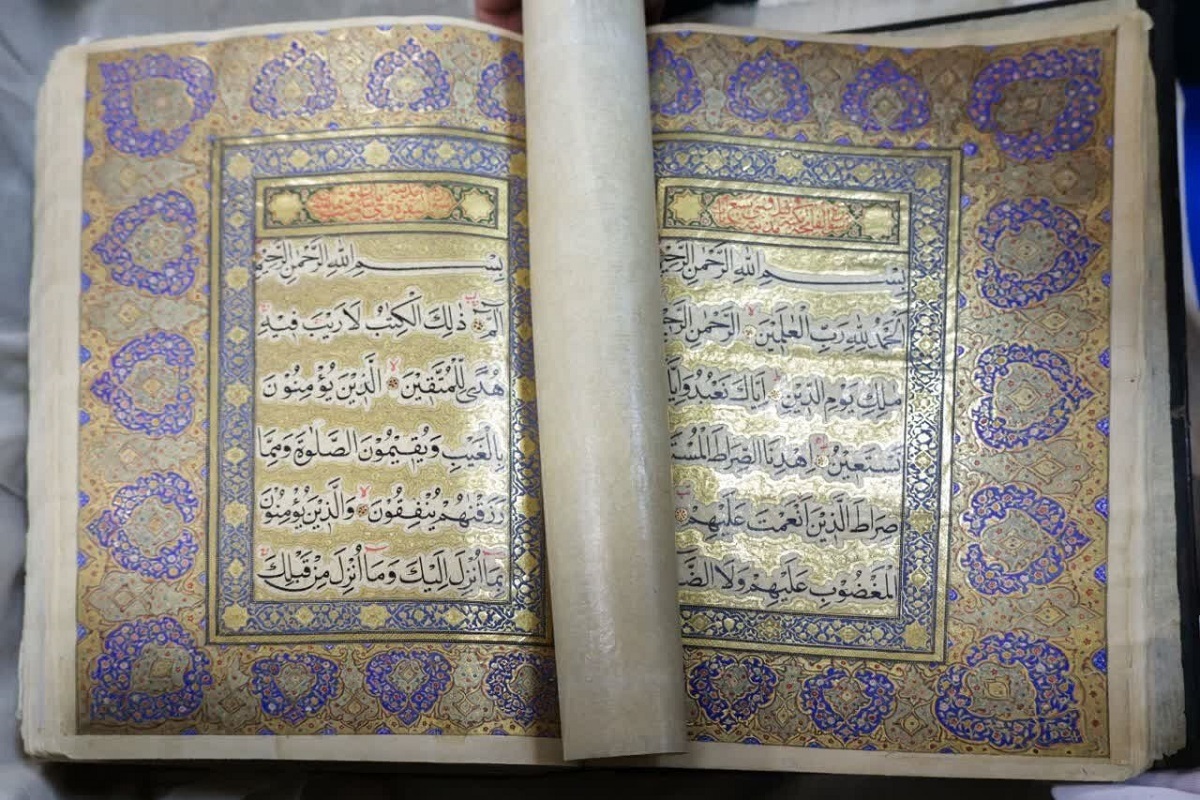 بِسْمِ اللهِ الرَّحْمٰنِ الرَّحِي
اَلْحَمْدُ لِلّٰهِ رَبِّ الْعٰلَمِينَ الرَّحْمٰنِ الرَّحِي
مٰلِكِ يَوْمِ الدِّينِ اِيَّاكَ نَعْبُدُ وَاِيَّا
نَسْتَعِينُ اِهْدِنَا الصِّرَاطَ الْمُسْتَ
صِرَاطَ الَّذِينَ اَنْعَمْتَ عَلَيْهِمْ
الْمَغْضُوبِ عَلَيْهِمْ وَلَا الضَّا
بِسْمِ اللهِ الرَّحْمٰنِ الرَّحِيمِ
الٓمٓ ذٰلِكَ الْكِتٰبُ لَا رَيْبَ فِيهِ
هُدًى لِلْمُتَّقِينَ الَّذِينَ يُؤْمِنُونَ
بِالْغَيْبِ وَيُقِيمُونَ الصَّلٰوةَ وَمِمَّا
رَزَقْنٰهُمْ يُنْفِقُونَ وَالَّذِينَ يُؤْمِنُونَ
بِمَٓا اُنْزِلَ اِلَيْكَ وَمَٓا اُنْزِلَ مِنْ قَبْلِكَ